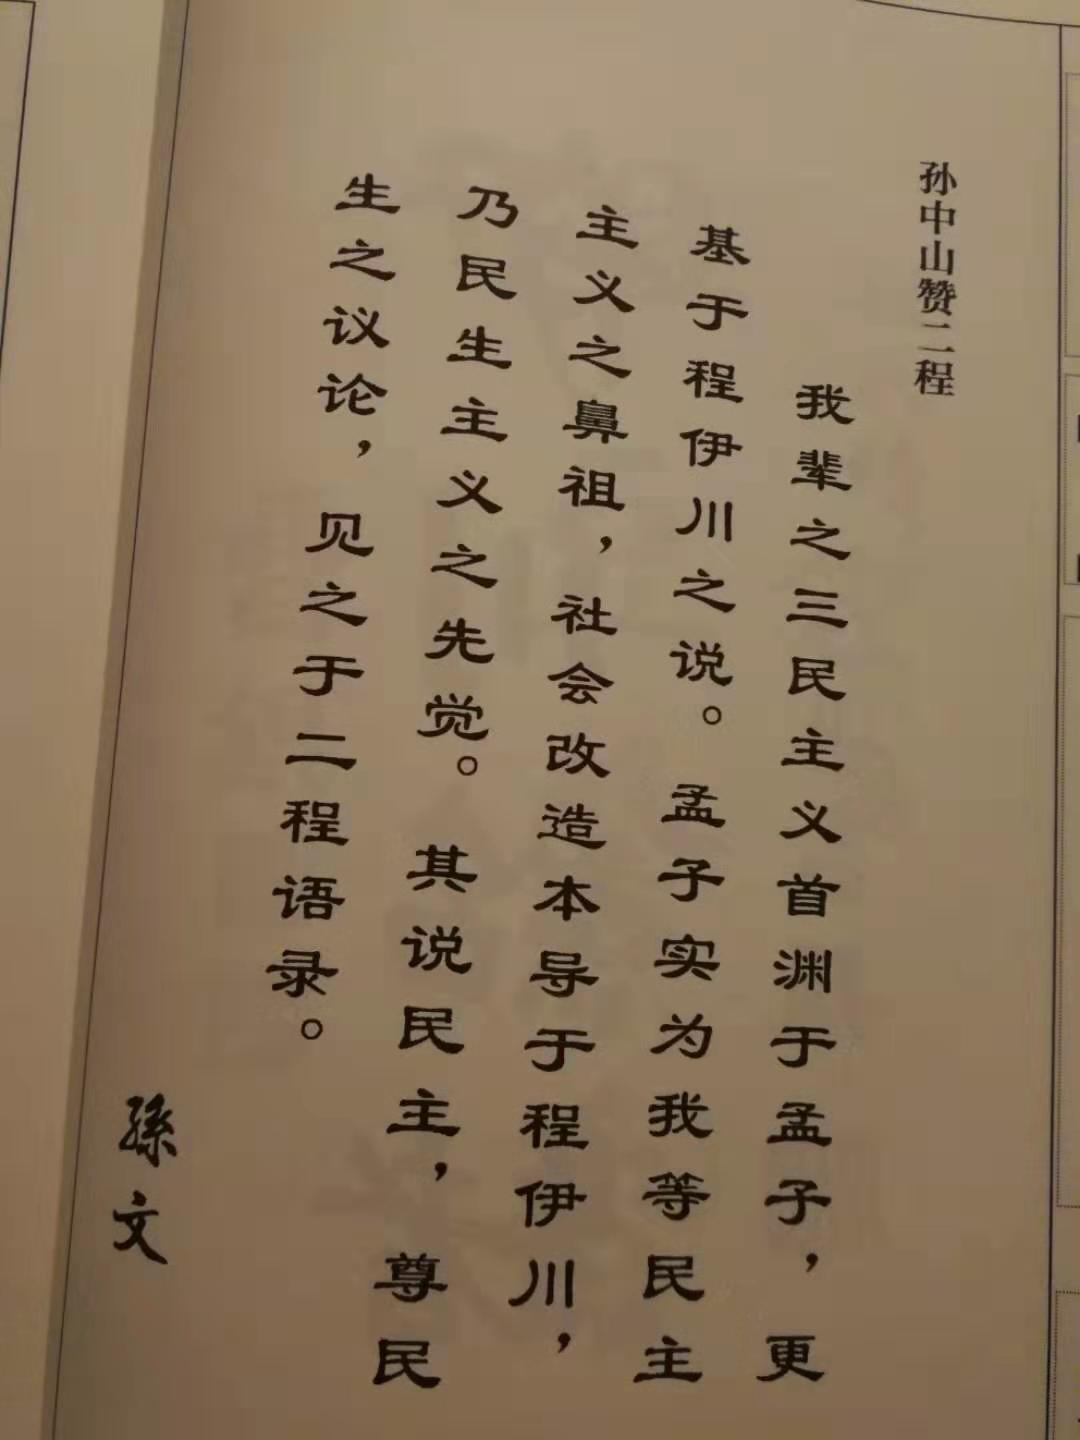 孙中山赞二程
我辈之三民主义首渊于孟子，更
基于程伊川之说。孟子实为我等民主
主义之鼻祖，社会改造本导于程伊川，
乃民生主义之先觉。其说民主，尊民
生之议论，见之于二程语录。
孫文